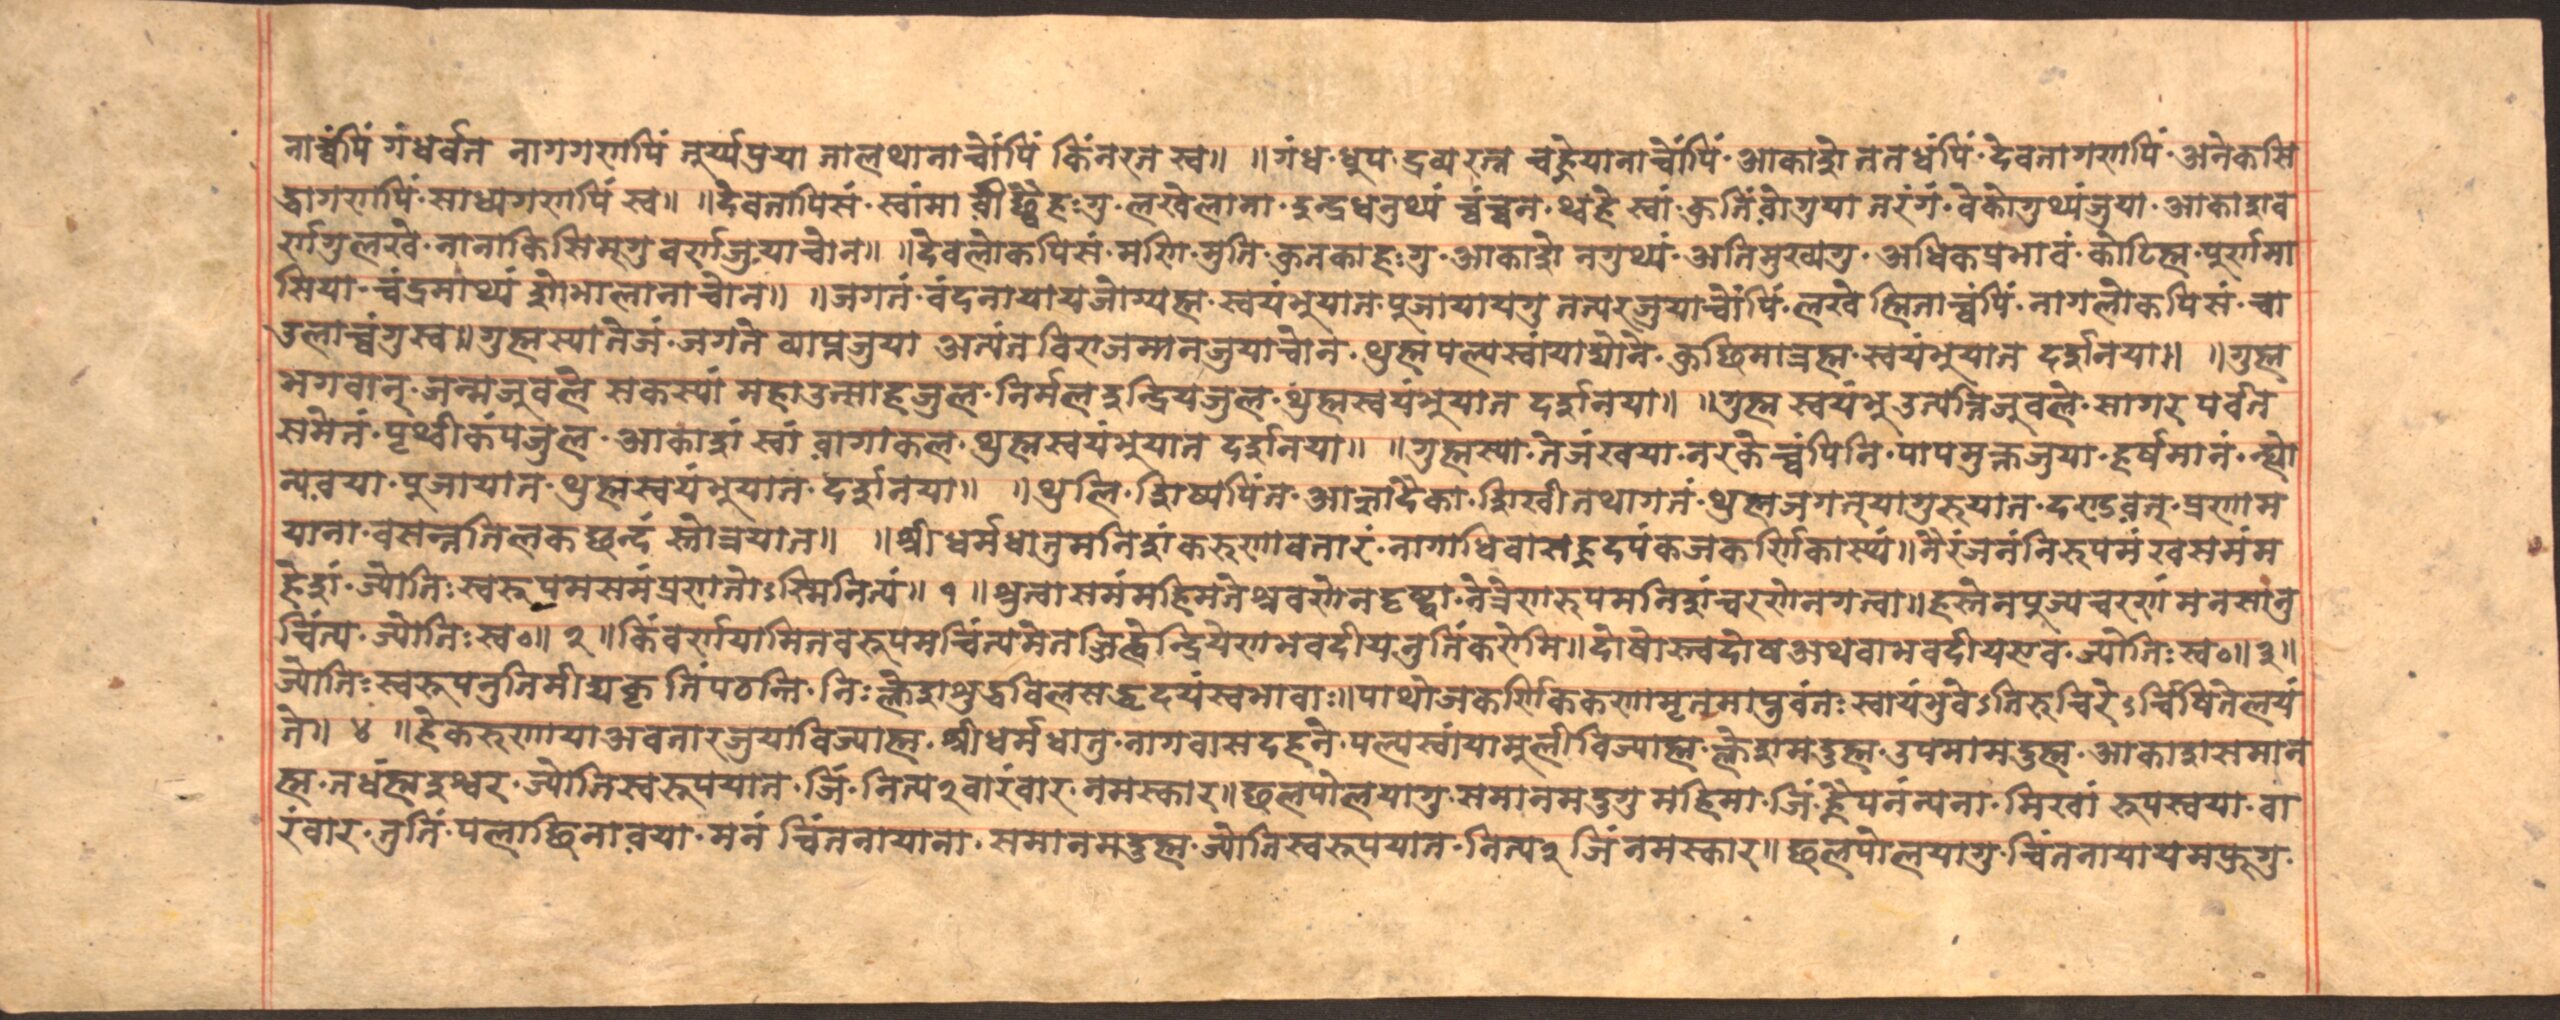 नाच्वंपिं गंधर्वत नागगणपिं तुर्य्यप्रुया तालथानाच्वोंपिं किंनरत स्व॥ ॥गंध·धुप·द्रव्यरत्न चहुेयानाच्वोंपिं·आकाशे ततधंपिं·देवतागणपिं·अनेकसि
द्धागणपिं·साध्यगणपिं स्व॥ ॥देवतापिसं·स्वांमा हुःगु·लखेलाना·इन्द्रधनुथ्यं च्वंच्वन·थ्वहे स्वां·कुतिं वोगुया तरंगं·वेकोगुथ्यंजुया·आकाशव
र्णगुलखे·नानाकिसिमगु वर्णजुयाचोन॥ ॥देवलोकपिसं·मणि·मुति·कुतकाहःगु·आकाशे नगुथ्यं·अतिमुख्यगु·अधिकप्रभावं·कोटिह्म·पुर्णमा
सिया·चंद्रमाथ्यं शोभालानाचोन॥ ॥जगतं·वंदनायायजोग्यह्म·स्वयंभुयात·पुजायायगु तत्परजुयाच्वोंपिं·लखे ह्मिताच्वंपिं·नागलोकपिसं·चा
उलाच्वंगुस्व॥गुह्मस्यातेजं·जगते व्याप्तजुया अत्यंत विराजमानजुयाचोन·थुह्मपल्यस्वांयाद्योने·कुछिमात्रह्म·स्वयंभुयात दर्शनया॥ ॥गुह्म
भगवान्·जन्मजुवले सकस्यां महाउत्साहजुल·निर्मलइन्द्रियजुल·थुह्मस्वयंभुयात दर्शनया॥ ॥गुह्म स्वयंभु उत्पत्तिजुवले·सागर पर्वत
समेतं·पृथ्वीकंपजुल·आकाशं स्वां वागाकल·थुह्मस्वयंभुयात दर्शनया॥ ॥गुह्मस्या·तेजंखया·नरकेच्वंपिनि·पापमुक्तजुया·हर्षमानं·
न्यवया·पुजायात·थुह्मस्वयंभुयात·दर्शनया॥ ॥थुलि·शिष्यपिंत·आज्ञादेका·शिखीतथागतं·थुह्मजगत्‌यागुरुयात·दण्डवत्·प्रणाम
याना·वसन्ततिलकछन्दं स्तोत्रयात॥ ॥श्रीधर्मधातुमनिशंकरुणावतारं·नागाधिवासहृदपंकजकर्णिकास्थं॥नैरंजनंनिरुपमंखसमंम
हेशं·ज्योतिःस्वरूपमसमंप्रणतोऽस्मिनित्यं॥ १ ॥श्रुत्वासमंमहिमतेश्रवणेनदृष्ट्वा·नेत्रेणरुपमनिशंचरणेनगत्वा॥हस्तेनपुज्यचरणंमनसानु
चिंत्य·ज्योतिःस्व०॥ २ ॥किंवर्णयामितवरूपमचिंत्यमेतज्जिह्वेन्द्रियेणभवदीयनुतिंकरोमि॥दोषोस्त्वदोषअथवाभवदीयएव·ज्योतिःस्व०॥३॥
ज्योतिःस्वरूपनुतिमीद्यकृतिंपठन्ति·निःक्लेशशुद्धविलसद्धृदयंस्वभावाः॥पाथोजकर्णिककणामृतमाप्नुवंतःस्वायंभुवेऽतिरुचिरेऽर्चिषितेलयं
ते॥ ४ ॥हेकरुणाया अवतारजुयाविज्याह्म·श्रीधर्मधातु·नागवासदहने·पल्यस्वांयामुलीविज्याह्म·क्लेशमदुह्म·उपमामदुह्म·आकाशसमान
ह्म·तधंह्मइश्वर·ज्योतिस्वरूपयात·जिं·नित्य२वारंवार·नमस्कार॥छलपोलयागु·समानमदुगु महिमा·जिं·पनंन्यना·मिखां रुपस्वया·वा
रंवार·तुतिं·पलाछिनावया·मनं चिंतनायाना·समानमदुह्म·ज्योतिस्वरूपयात·नित्य२ जिंनमस्कार॥छलपोलयागु·चिंतनायायमफुगु·